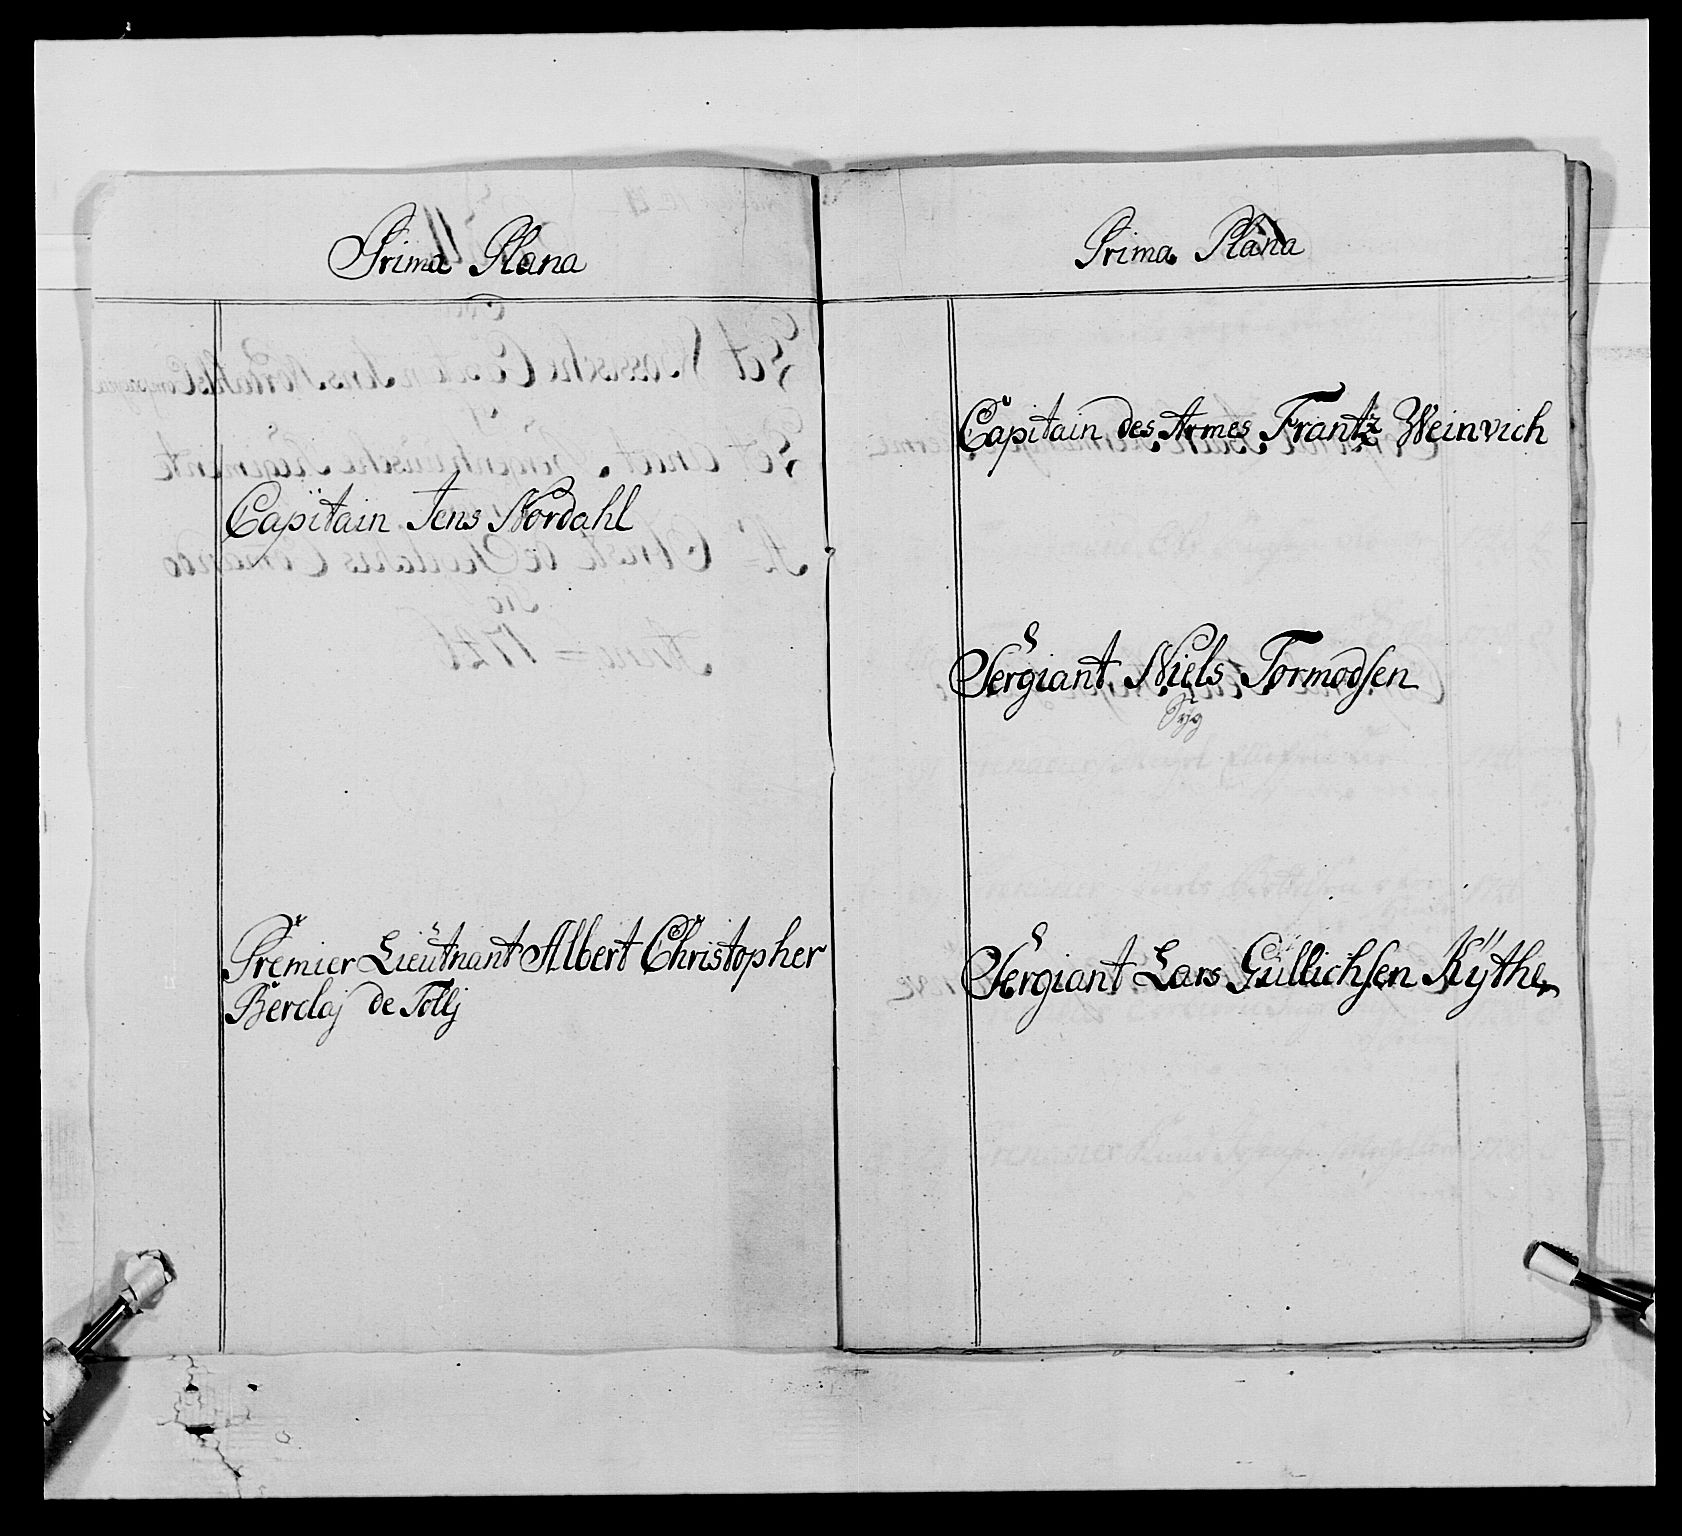 Prima Plana
Capitain Jens Nordahl
Premier Lieutnant Albert Christopher
Berclaj de Tollj
Prima Plana
Capitain des Armes Frantz Weinvich
Sergiant Niels Tormodsen
Sÿg
Sergiant Lars Gullichsen Kÿthe